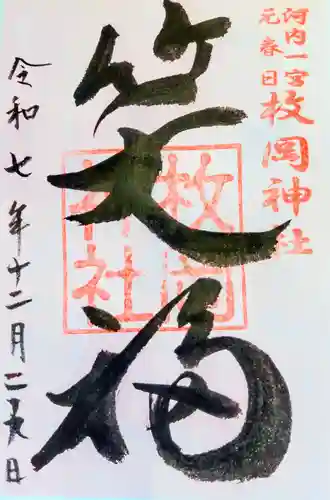 河内一宮
元春日
枚岡神社
笑福
枚岡
神社
令和七年十二月二十五日